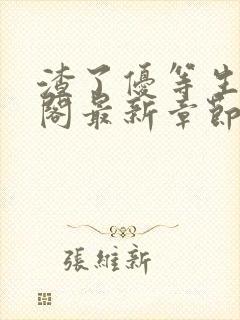 渣了優等生
閣最新章節
張維新